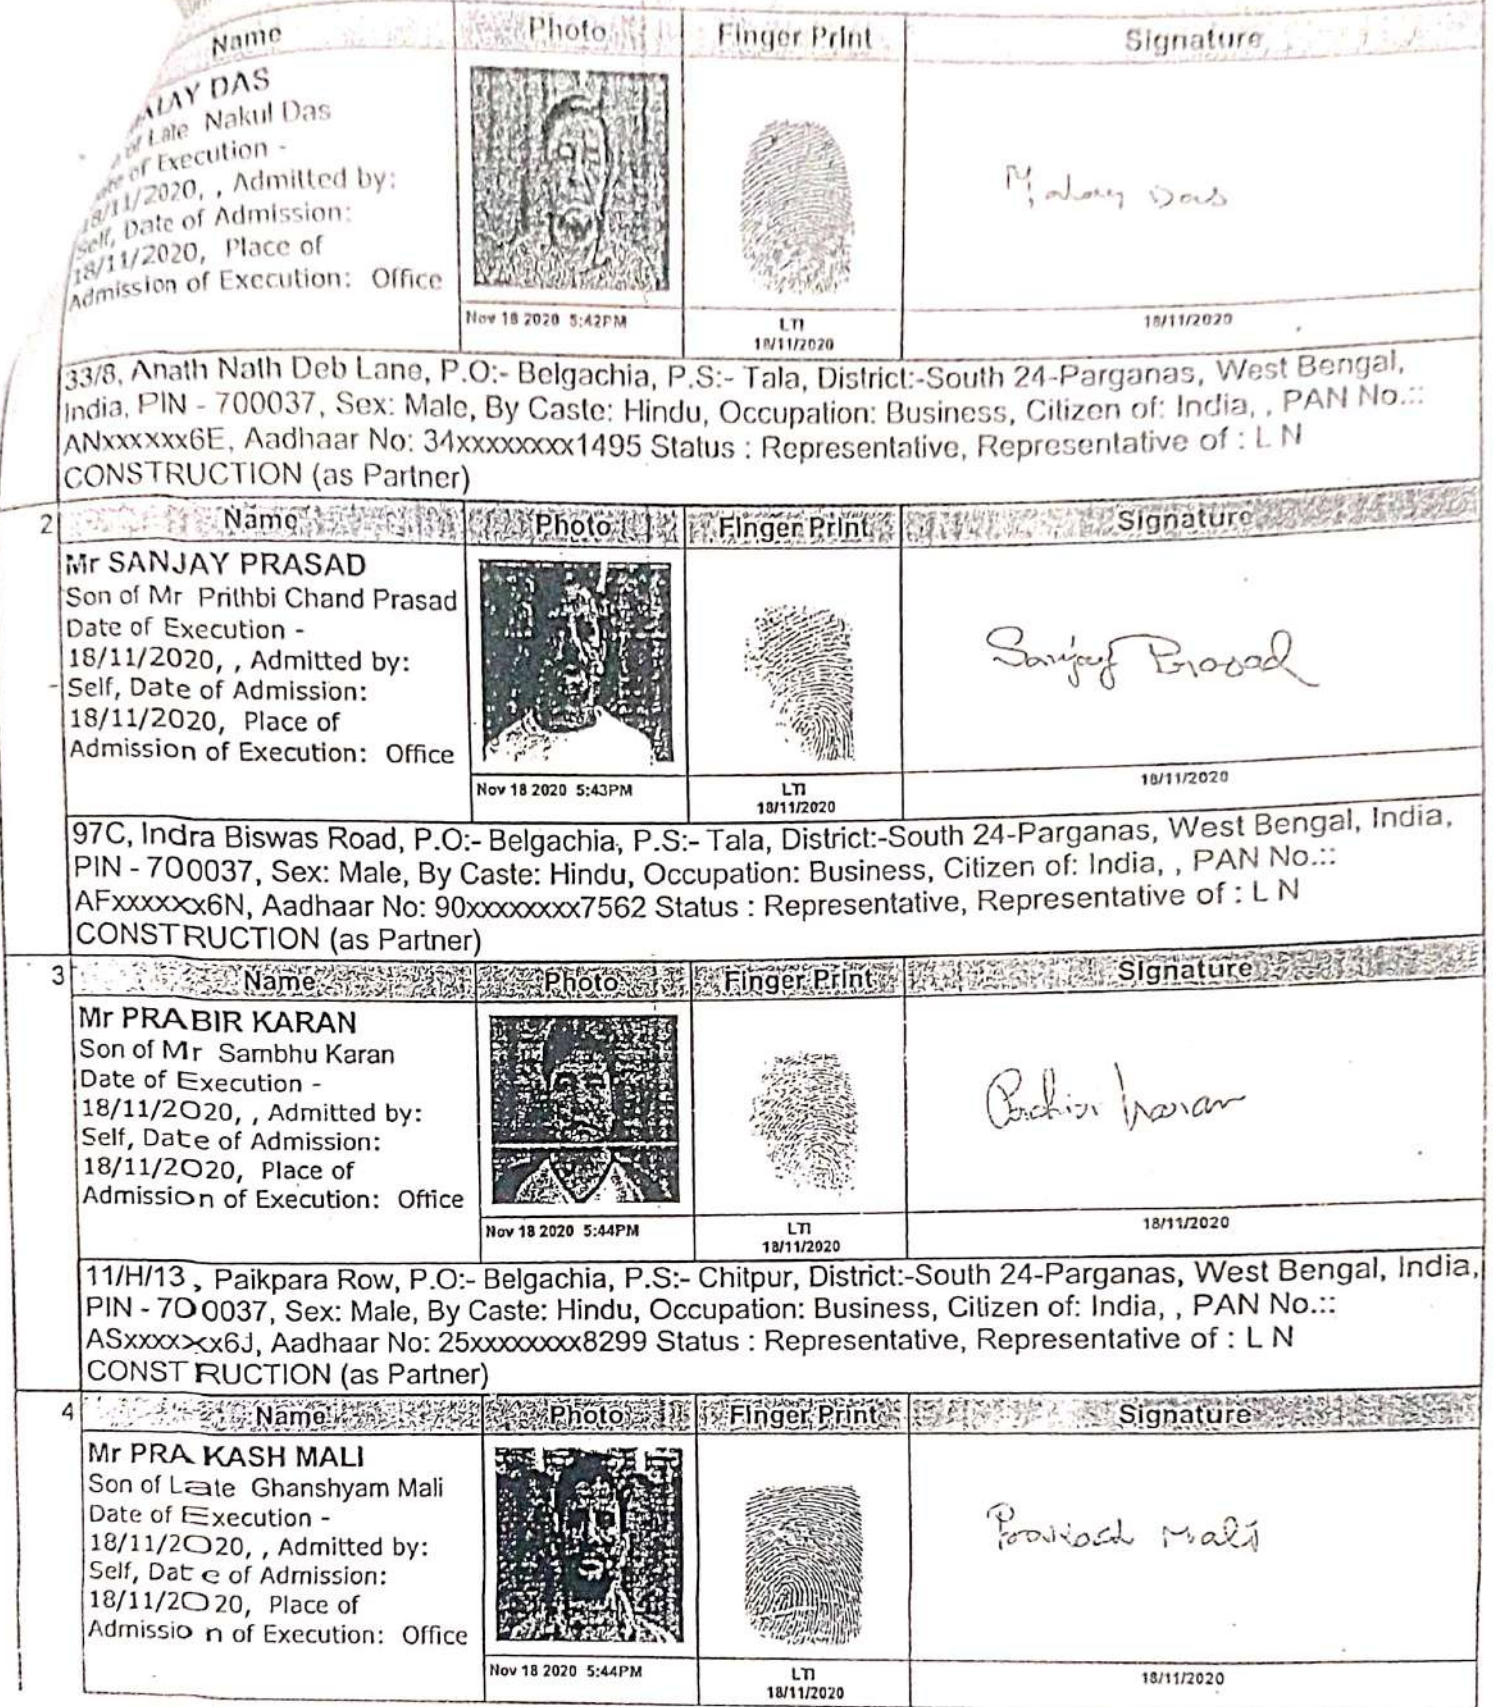 Name Photo Finger Print Signature
ALAY DAS
of Late Nakul Das
of Execution -
18/11/2020, , Admitted by:
Self, Date of Admission:
18/11/2020, Place of
Admission of Execution: Office
Malay Das
Nov 18 2020 5:42PM LTI 18/11/2020
18/11/2020
33/8, Anath Nath Deb Lane, P.O:- Belgachia, P.S:- Tala, District:-South 24-Parganas, West Bengal,
India, PIN - 700037, Sex: Male, By Caste: Hindu, Occupation: Business, Citizen of: India, , PAN No.::
ANxxxxxx6E, Aadhaar No: 34xxxxxxxx1495 Status : Representative, Representative of : L N
CONSTRUCTION (as Partner)
2 Name Photo Finger Print Signature
Mr SANJAY PRASAD
Son of Mr Prithbi Chand Prasad
Date of Execution -
18/11/2020, , Admitted by:
Self, Date of Admission:
18/11/2020, Place of
Admission of Execution: Office
Sanjay Prasad
Nov 18 2020 5:43PM LTI 18/11/2020
18/11/2020
97C, Indra Biswas Road, P.O:- Belgachia, P.S:- Tala, District:-South 24-Parganas, West Bengal, India,
PIN - 700037, Sex: Male, By Caste: Hindu, Occupation: Business, Citizen of: India, , PAN No.::
AFxxxxxx6N, Aadhaar No: 90xxxxxxxx7562 Status : Representative, Representative of : L N
CONSTRUCTION (as Partner)
3 Name Photo Finger Print Signature
Mr PRABIR KARAN
Son of Mr Sambhu Karan
Date of Execution -
18/11/2020, , Admitted by:
Self, Date of Admission:
18/11/2020, Place of
Admission of Execution: Office
Prabir Karan
Nov 18 2020 5:44PM LTI 18/11/2020
18/11/2020
11/H/13 , Paikpara Row, P.O:- Belgachia, P.S:- Chitpur, District:-South 24-Parganas, West Bengal, India,
PIN - 700037, Sex: Male, By Caste: Hindu, Occupation: Business, Citizen of: India, , PAN No.::
ASxxxxxx6J, Aadhaar No: 25xxxxxxxx8299 Status : Representative, Representative of : L N
CONSTRUCTION (as Partner)
4 Name Photo Finger Print Signature
Mr PRAKASH MALI
Son of Late Ghanshyam Mali
Date of Execution -
18/11/2020, , Admitted by:
Self, Date of Admission:
18/11/2020, Place of
Admission of Execution: Office
Prakash Mali
Nov 18 2020 5:44PM LTI 18/11/2020
18/11/2020